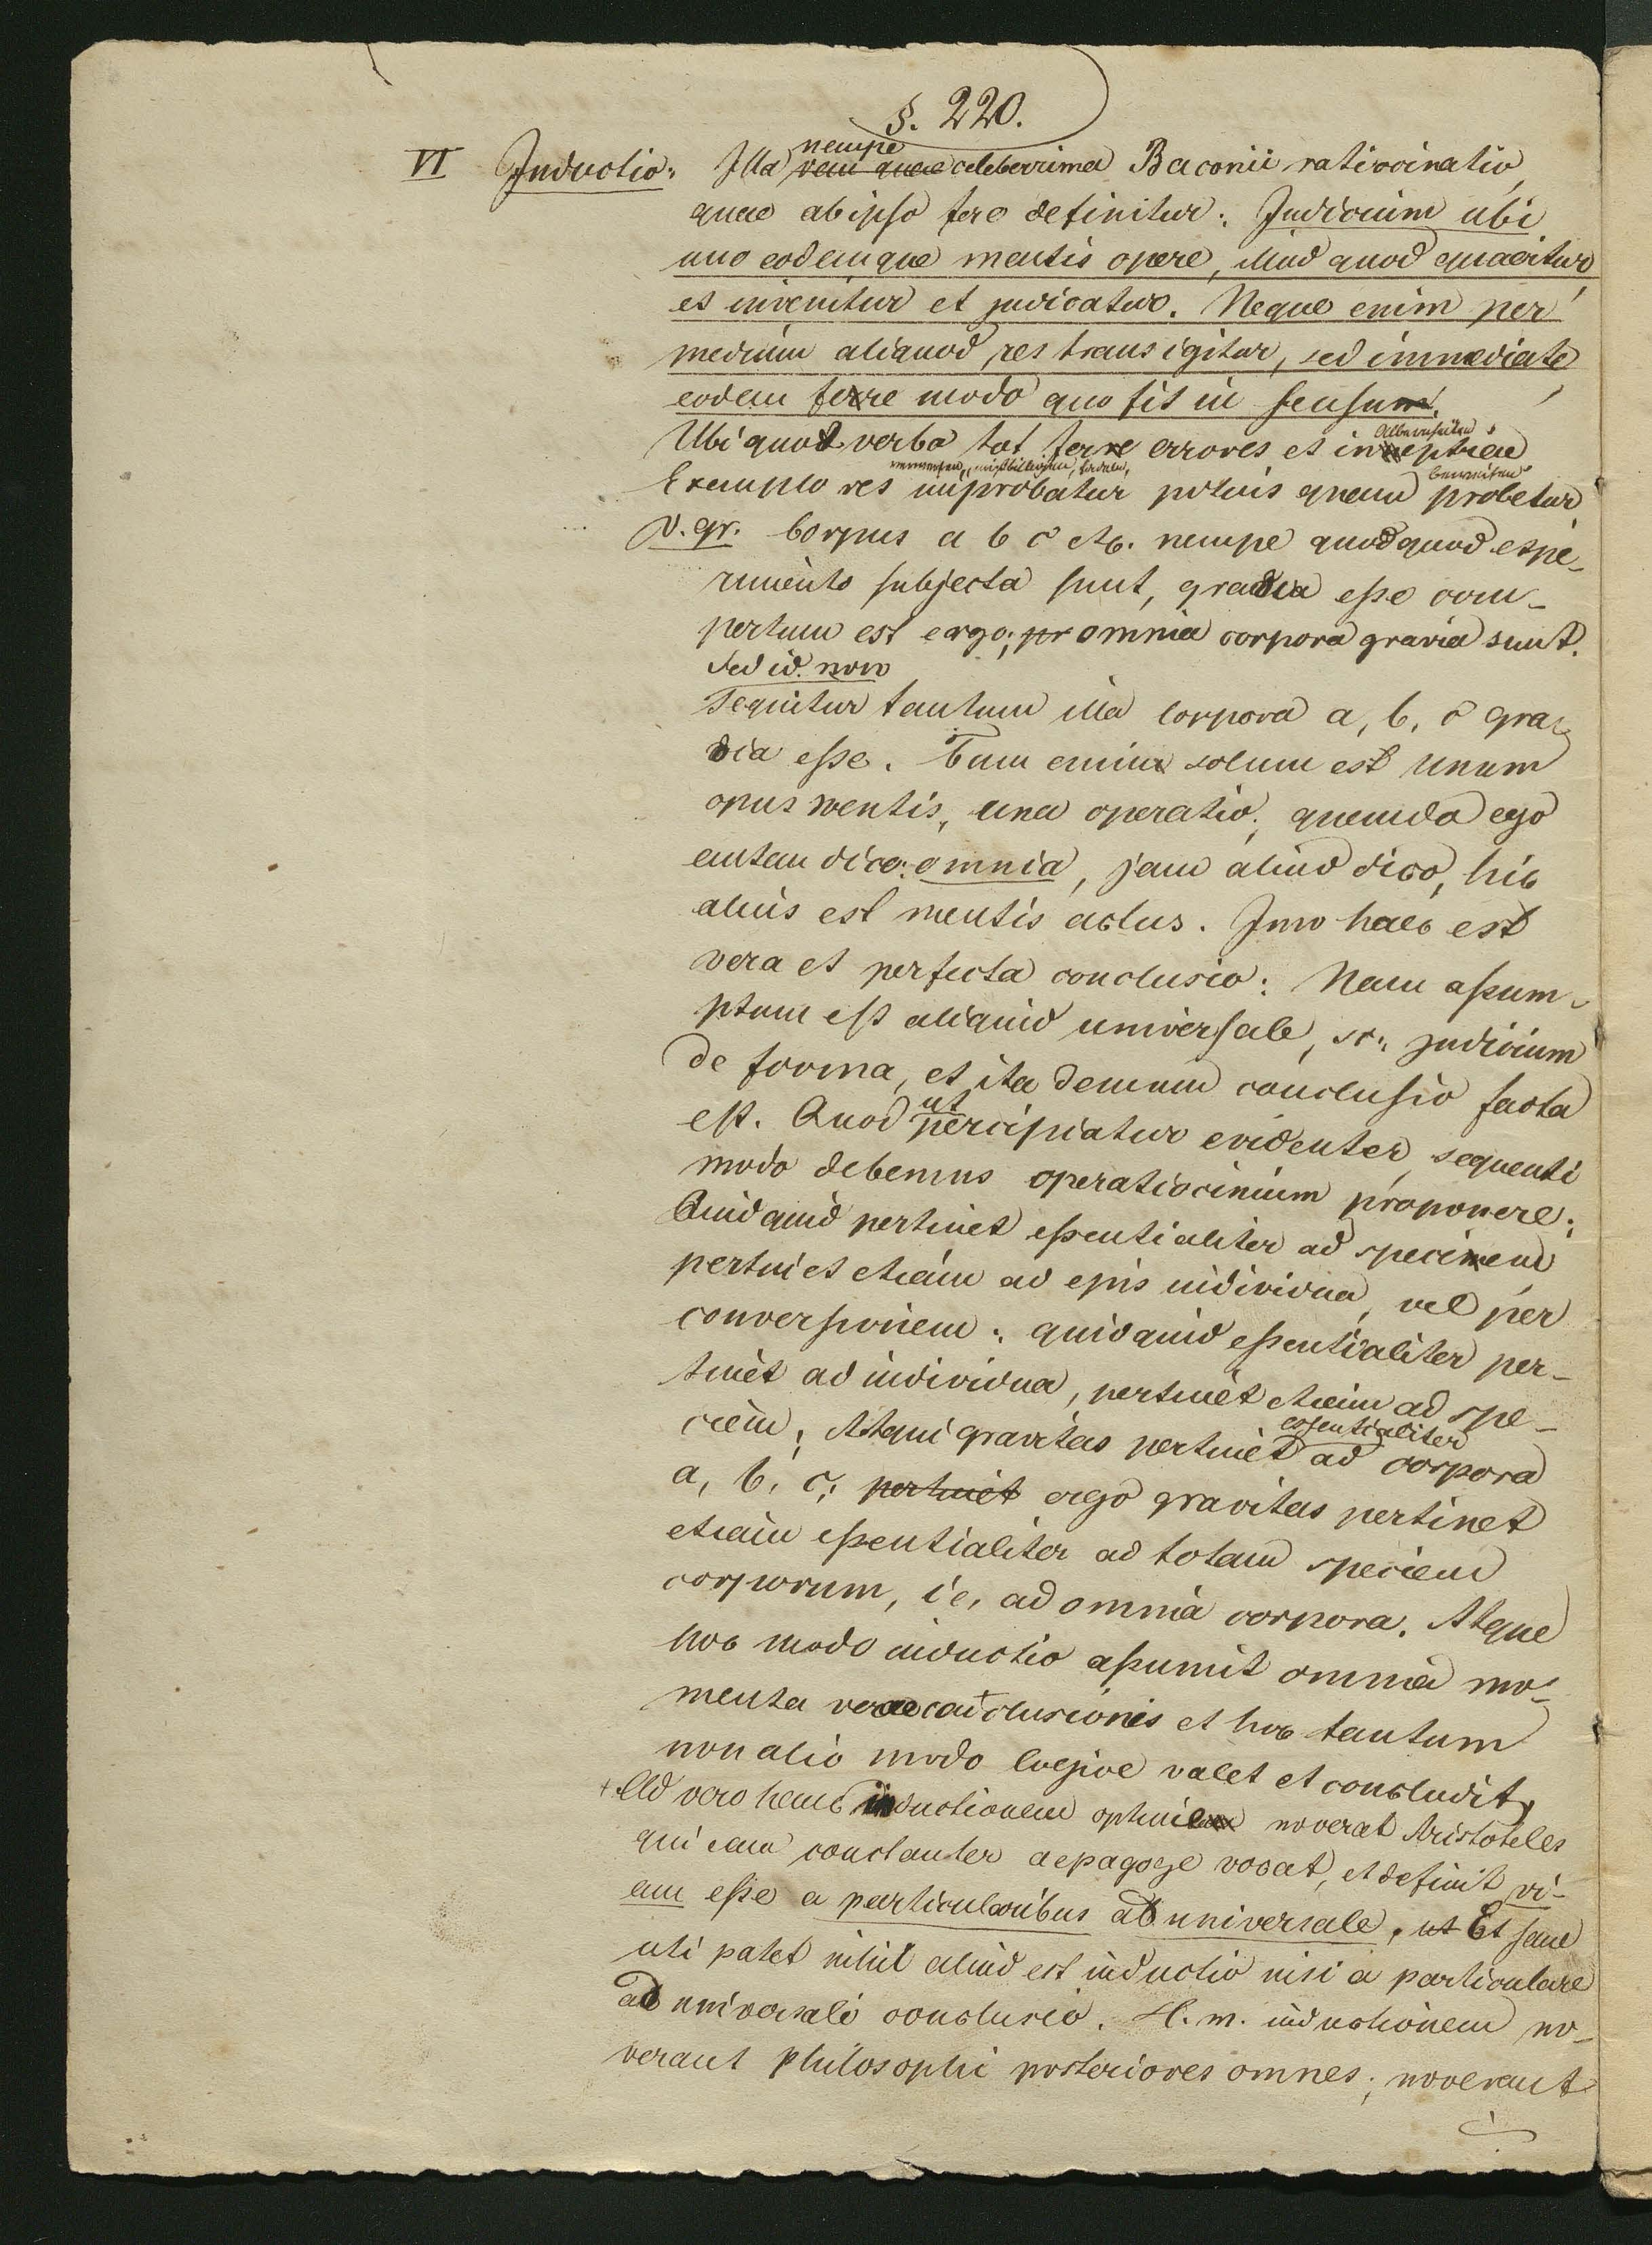 §. 220.
VI Inductio: Illa nempe celeberrima Baconii ratiocinatio,
quae ab ipso fere definitur: Iudicium ubi
uno eodemque mentis opere, illud quod quaeritur
et invenitur et judicatur. Neque enim per
medium aliquod res transigitur, sed immediate
eodem fere modo quo fit in sensu.
Albernheiten
Ubi quot verba tot fere errores et ineptiae
verwerfen, mißbilligen, tadeln, beweisen
Exemplo res improbatur potius quam probetur
v. gr. Corpus a b c etc. nempe quodquod expe-
rimento subjecta sunt, gravia esse com-
pertum est ergo; omnia corpora gravia sunt.
Sed id. non
sequitur tantum illa corpora a, b, c gra-
via esse. Tum enim solum est unum
opus mentis, una operatio; quando ego
autem dico: omnia, jam aliud dico, hic
alius est mentis actus. Imo haec est
vera et perfecta conclusio: Nam assum-
ptum est aliquid universale, sc. judicium
de forma, et ita demum conclusio facta
est. Quod ut percipiatur evidenter, sequenti
modo debemus operatiocinium proponere:
Quidquid pertinet essentialiter ad speciem
pertinet etiam ad ejus individua, vel per
conversionem: quidquid essentialiter per-
tinet ad individua, pertinet etiam ad spe-
ciem; Atqui gravitas pertinet essentialiter ad corpora
a, b, c; pertinet ergo gravitas pertinet
etiam essentialiter ad totam speciem
corporum, i.e. ad omnia corpora. Atque
hoc modo inductio assumit omnia mo-
menta verae conclusionis et hoc tantum
non alio modo logice valet et concludit,
+ Ad vero hanc inductionem optime noverat Aristoteles
qui eam constanter aepagoge vocat, et definit vi-
am esse a particularibus ad universale. Et sane
uti patet nihil aliud est inductio nisi a particulare
ad universali conclusio. H. m. inductionem no-
verant philosophi posteriores omnes; noverant